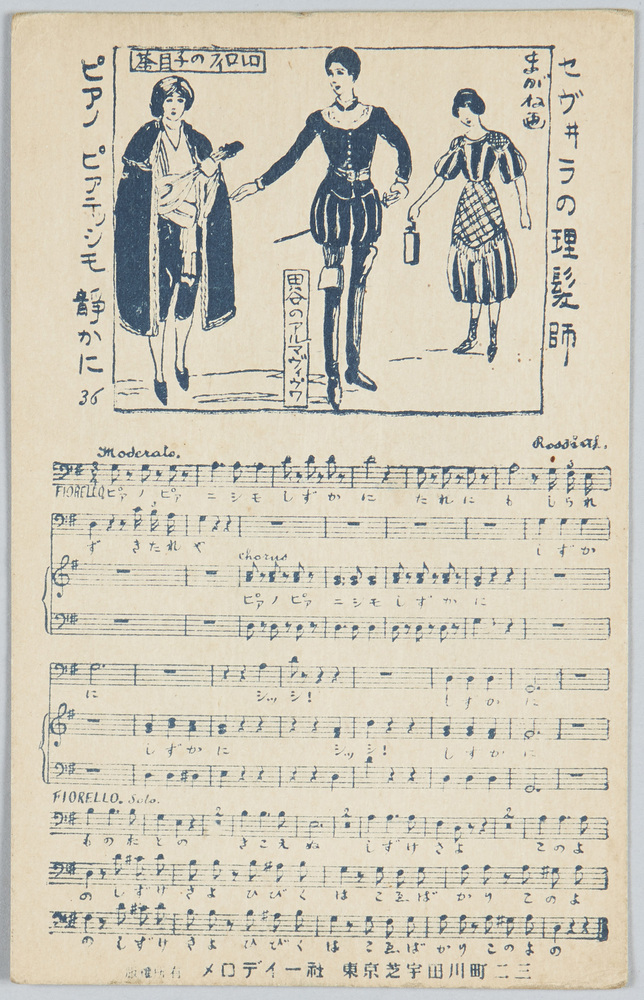 セヴヰラの理髪師
まがね画
ロロイフの子目茶
田谷のアルマヴィヴワ
ピアノ ピアニッシモ 静かに
36
Moderato.
FIORELLO ピアノ ピアニシモ しずかに たれにも しられ
ず きたれや しずか
chorus
ピアノ ピアニシモ しずかに
に シッシ! しずかに
しずかに シッシ! しずかに
FIORELLO. Solo.
ものおとの きこえぬ しずけさよ このよ
の しずけさよ ひびくは こゑばかり このよ
の しずけさよ ひびくは こゑばかり このよの
メロデイー社 東京芝宇田川町二三